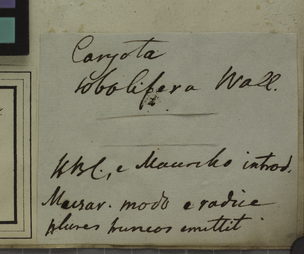 Caryota
sobolifera Wall.
HBC, e Mauritio introd.
Musar. modo e radice
plures truncos emittit